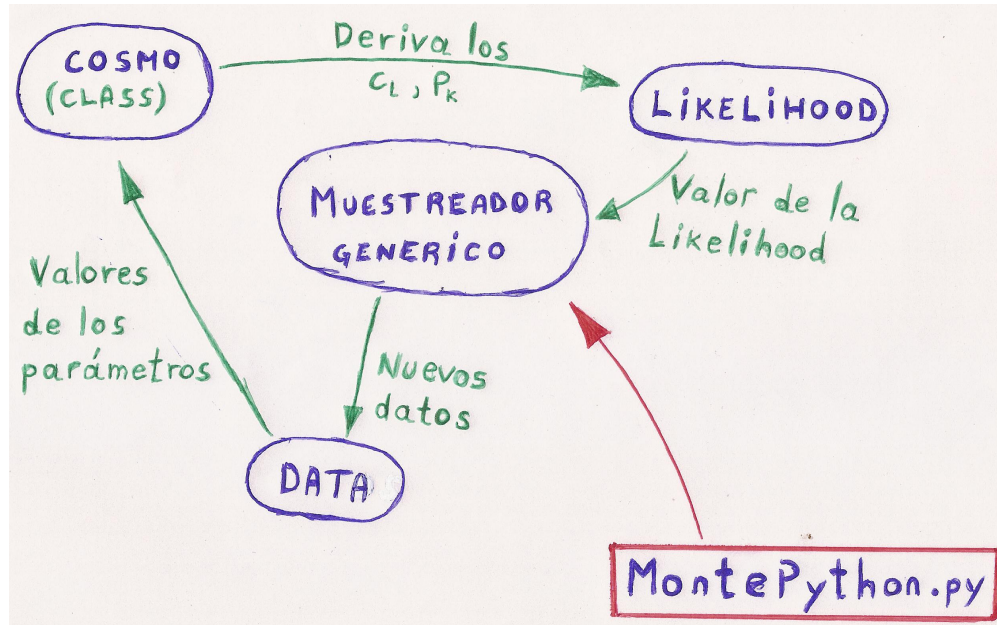 COSMO
(CLASS)
Deriva los
CL, PK
LiKELiHOOD
MUESTREADOR
GENERiCO
Valor de la
Likelihood
Valores
de los
parámetros
Nuevos
datos
DATA
MontePython.py